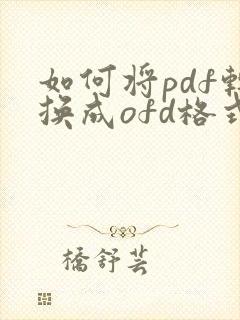 如何将pdf转
换成ofd格式
桥舒芸